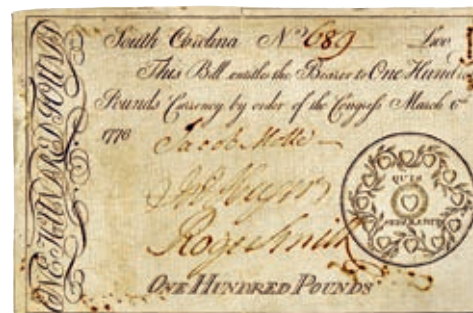 ONE HUNDRED POUNDS
South Carolina No 689
This Bill entitles the Bearer to One Hund
Pounds Currency by order of the Congress March 6th
1776
Jacob Motte
Roger Smith
QUIS
SEPARABIT
ONE HUNDRED POUNDS